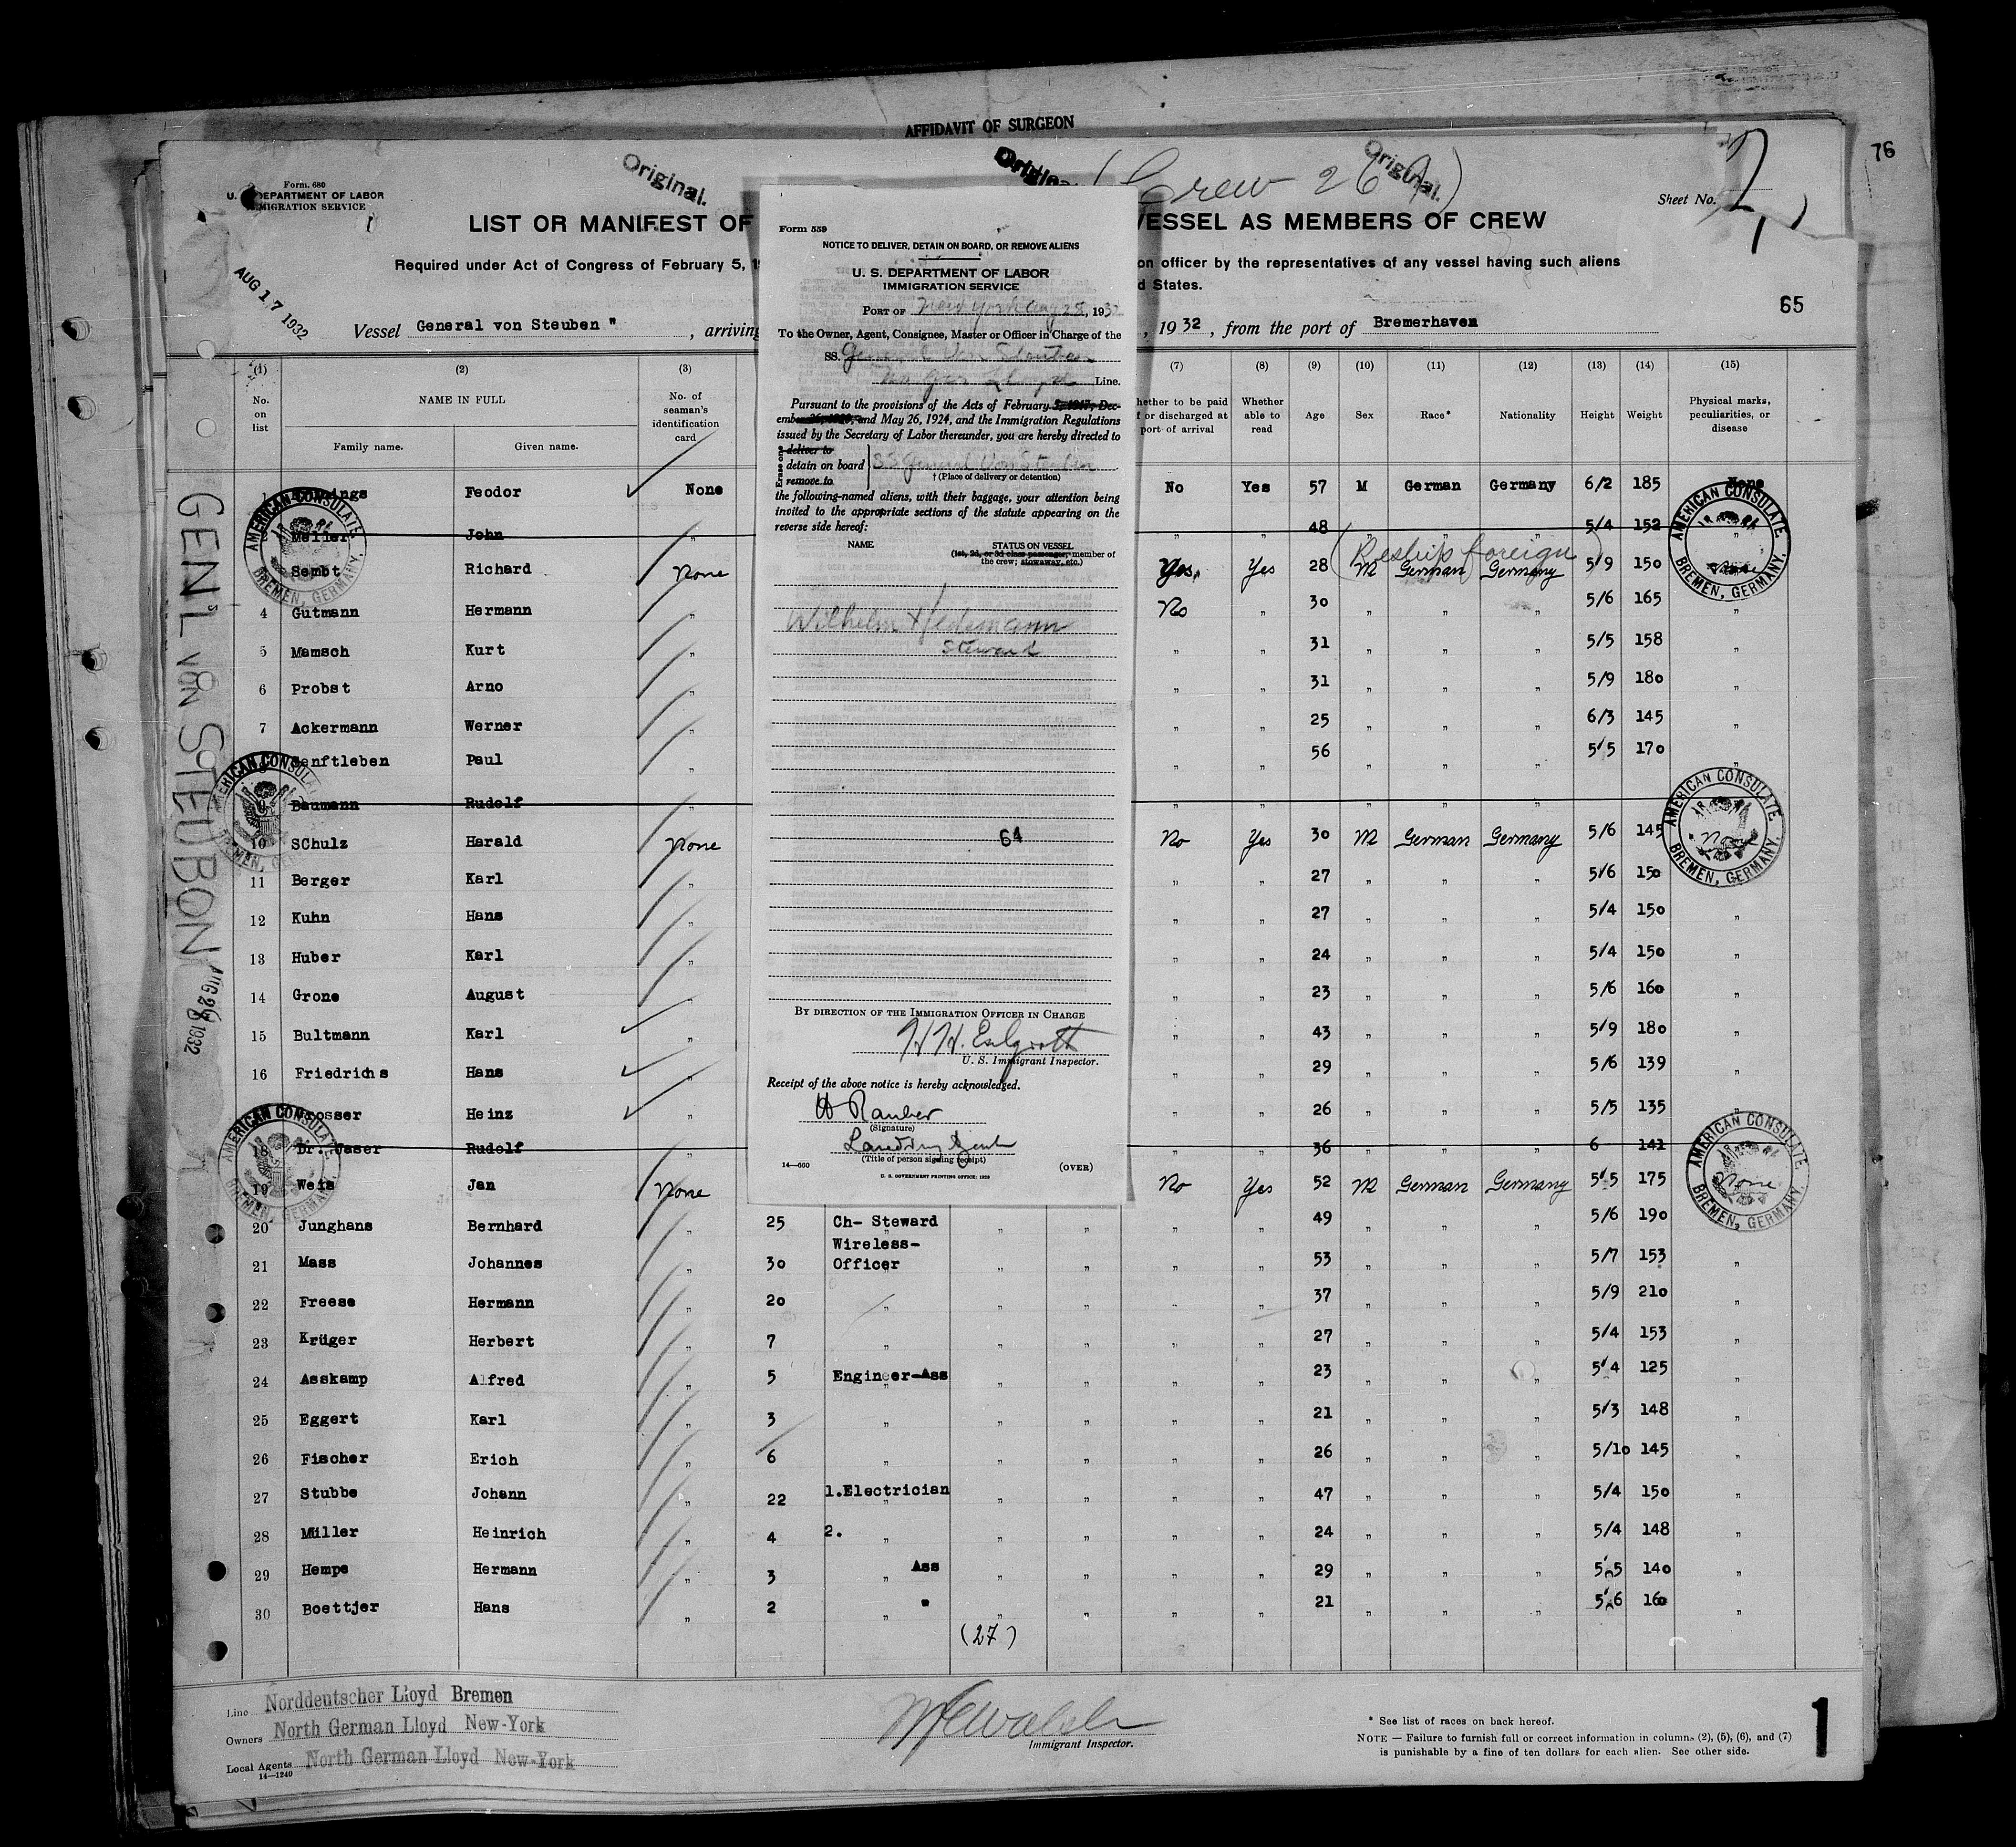 AFFIDAVIT OF SURGEON
76
Original.
Original.
(Crew 267)
Form. 680
U. S. DEPARTMENT OF LABOR
IMMIGRATION SERVICE
Sheet No. 2
LIST OR MANIFEST OF
VESSEL AS MEMBERS OF CREW
Required under Act of Congress of February 5, 1
on officer by the representatives of any vessel having such aliens
d States.
65
AUG 17 1932
Vessel General von Steuben " , arriving
, 1932 , from the port of Bremerhaven
GEN'L VON STEUBON
AUG 1932
(1) (2) (3) (7) (8) (9) (10) (11) (12) (13) (14) (15)
No. on list
NAME IN FULL
Family name. Given name.
No. of seaman's identification card
hether to be paid
f or discharged at
port of arrival
Whether able to read
Age Sex Race* Nationality Height Weight
Physical marks, peculiarities, or disease
Feodor None No Yes 57 M German Germany 6/2 185 None
Meller John " " " 48 " " " 5/4 152
(Reship foreign)
Sembt Richard None Yes. Yes 28 M German Germany 5/9 150 None
4 Gutmann Hermann " No " 30 " " " 5/6 165 "
5 Mamsch Kurt " " " 31 " " " 5/5 158 "
6 Probst Arno " " " 31 " " " 5/9 180 "
7 Ackermann Werner " " " 25 " " " 6/3 145 "
Senftleben Paul " " " 56 " " " 5/5 170 "
9 Baumann Rudolf " " " " " "
10 SChulz Harald None No Yes 30 M German Germany 5/6 145 No
11 Berger Karl " " " 27 " " " 5/6 150
12 Kuhn Hans " " " 27 " " " 5/4 150 "
13 Huber Karl " " " 24 " " " 5/4 150 "
14 Grone August " " " 23 " " " 5/6 160 "
15 Bultmann Karl " " " 43 " " " 5/9 180 "
16 Friedrichs Hans " " " 29 " " " 5/6 139 "
Heinz " " " 26 " " " 5/5 135 "
18 Dr. Jaser Rudolf " " " 36 " " " 6 141
19 Weis Jan None No Yes 52 M German Germany 5/5 175 None
20 Junghans Bernhard " 25 Ch- Steward " " " " 49 " " " 5/6 190
21 Mass Johannes " 30 Wireless-
Officer " " " " 53 " " " 5/7 153 "
22 Freese Hermann " 20 " " " " " 37 " " " 5/9 210 "
23 Krüger Herbert " 7 " " " " " 27 " " " 5/4 153 "
24 Asskamp Alfred " 5 Engineer-Ass " " " " 23 " " " 5/4 125 "
25 Eggert Karl " 3 " " " " " 21 " " " 5/3 148 "
26 Fischer Erich " 6 " " " " " 26 " " " 5/10 145 "
27 Stubbe Johann " 22 1.Electrician " " " " 47 " " " 5/4 150 "
28 Müller Heinrich " 4 2. " " " " " 24 " " " 5/4 148 "
29 Hempe Hermann " 3 " Ass " " " " 29 " " " 5/5 140 "
30 Boettjer Hans " 2 " " " " " " 21 " " " 5/6 160 "
(27)
AMERICAN CONSULATE, BREMEN, GERMANY.
AMERICAN CONSULATE, BREMEN, GERMANY.
AMERICAN CONSULATE, BREMEN, GERMANY.
AMERICAN CONSULATE, BREMEN, GERMANY.
AMERICAN CONSULATE, BREMEN, GERMANY.
AMERICAN CONSULATE, BREMEN, GERMANY.
Form 559
NOTICE TO DELIVER, DETAIN ON BOARD, OR REMOVE ALIENS
U. S. DEPARTMENT OF LABOR
IMMIGRATION SERVICE
PORT OF New York Aug 28, 193
To the Owner, Agent, Consignee, Master or Officer in Charge of the
SS. General Von Stouben
No Ger Lloyd Line.
Pursuant to the provisions of the Acts of February 5, 1917, Dec-
ember 26, 1920, and May 26, 1924, and the Immigration Regulations
issued by the Secretary of Labor thereunder, you are hereby directed to
Erase one
deliver to
detain on board SS General Von Steuben
remove to
†(Place of delivery or detention)
the following-named aliens, with their baggage, your attention being
invited to the appropriate sections of the statute appearing on the
reverse side hereof:
NAME STATUS ON VESSEL
(1st, 2d, or 3d class passenger, member of
the crew; stowaway, etc.)
Wilhelm Hedemann
Steward
64
BY DIRECTION OF THE IMMIGRATION OFFICER IN CHARGE
U. S. Immigrant Inspector.
Receipt of the above notice is hereby acknowledged.
(Signature)
Landing Agent
(Title of person signing receipt)
14—660
(OVER)
U. S. GOVERNMENT PRINTING OFFICE: 1929
Line Norddeutscher Lloyd Bremen
Owners North German Lloyd New-York
Local Agents North German Lloyd New-York
14—1240
Immigrant Inspector.
* See list of races on back hereof.
NOTE — Failure to furnish full or correct information in columns (2), (5), (6), and (7)
is punishable by a fine of ten dollars for each alien. See other side.
1